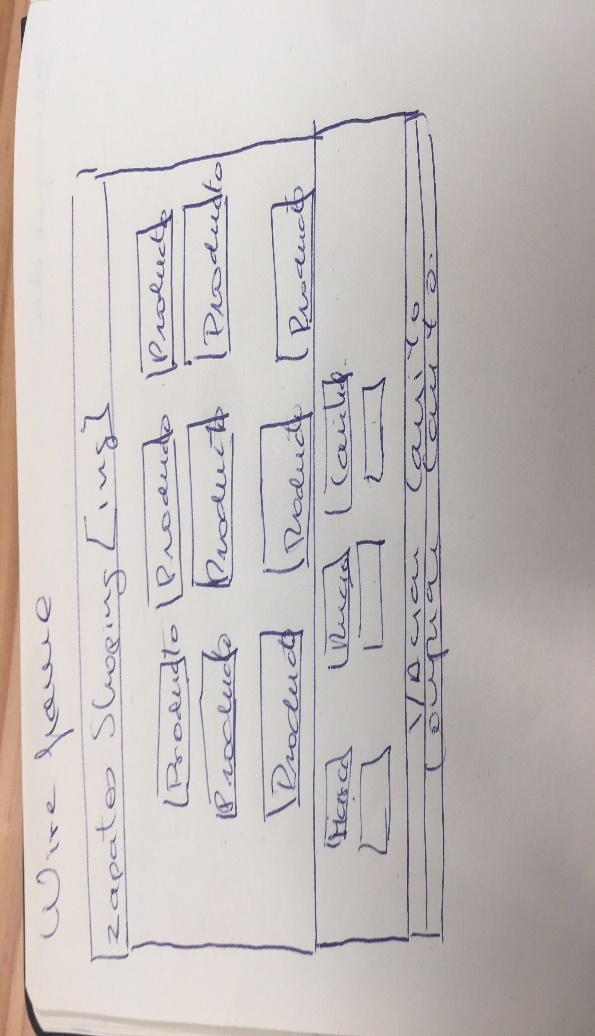 Wire frame
Zapatos Shoping [img]
Producto Producto Producto
Producto Producto Producto
Producto Producto Producto
Marca Precio Cantid.
Carrito
Comprar Carrito.